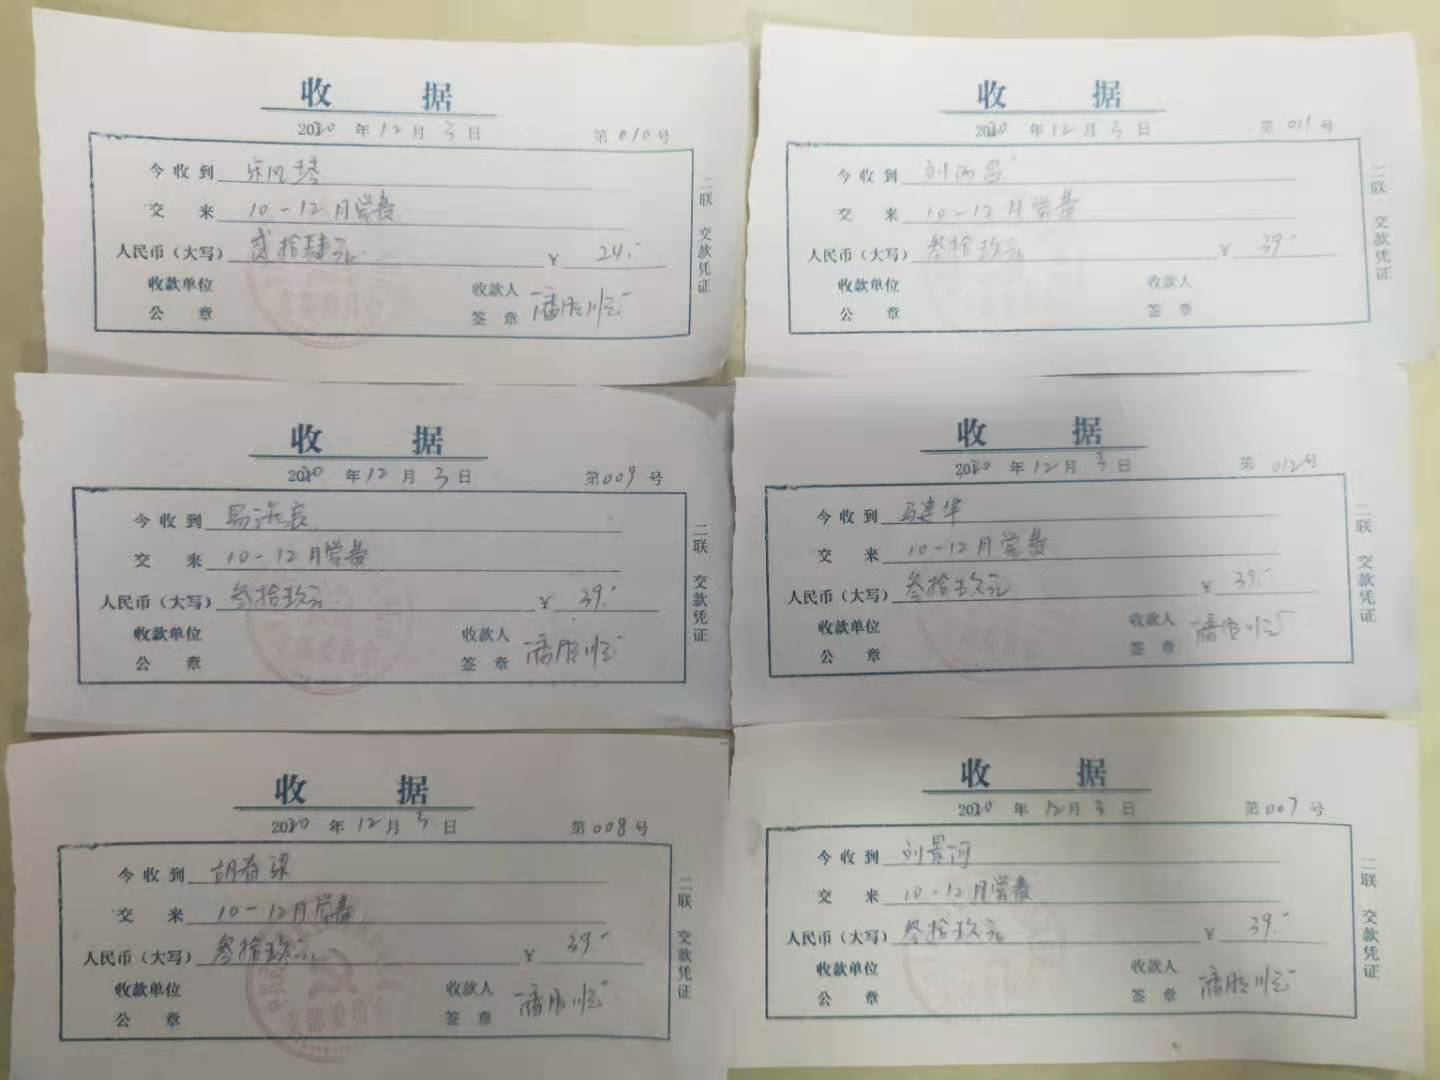 收 据
2020 年 12 月 3 日 第 010 号
今 收 到 宋凤琴
交 来 10-12月党费
人民币（大写） 贰拾肆元 ¥ 24.-
收款单位 收款人
公 章 签 章
二联 交款凭证
收 据
2020 年 12 月 3 日 第 011 号
今 收 到 刘
交 来 10-12月党费
人民币（大写） 叁拾玖元 ¥ 39.-
收款单位 收款人
公 章 签 章
二联 交款凭证
收 据
2020 年 12 月 3 日 第 009 号
今 收 到 易
交 来 10-12月党费
人民币（大写） 叁拾玖元 ¥ 39.-
收款单位 收款人
公 章 签 章
二联 交款凭证
收 据
2020 年 12 月 3 日 第 012 号
今 收 到 马建华
交 来 10-12月党费
人民币（大写） 叁拾玖元 ¥ 39.-
收款单位 收款人
公 章 签 章
二联 交款凭证
收 据
2020 年 12 月 3 日 第 008 号
今 收 到 胡春梁
交 来 10-12月党费
人民币（大写） 叁拾玖元 ¥ 39.-
收款单位 收款人
公 章 签 章
二联 交款凭证
收 据
2020 年 12 月 3 日 第 007 号
今 收 到 刘景河
交 来 10-12月党费
人民币（大写） 叁拾玖元 ¥ 39.-
收款单位 收款人
公 章 签 章
二联 交款凭证